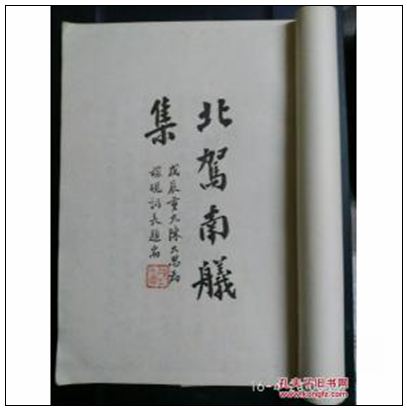 北駕南艤
集
戊辰重九陳大昌為
福硯詞長題耑
孔夫子旧书网